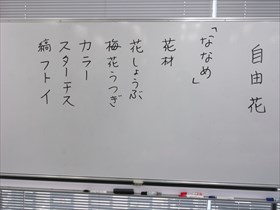 自由花
「ななめ」
花材
花しょうぶ
梅花うつぎ
カラー
スターチス
縞フトイ